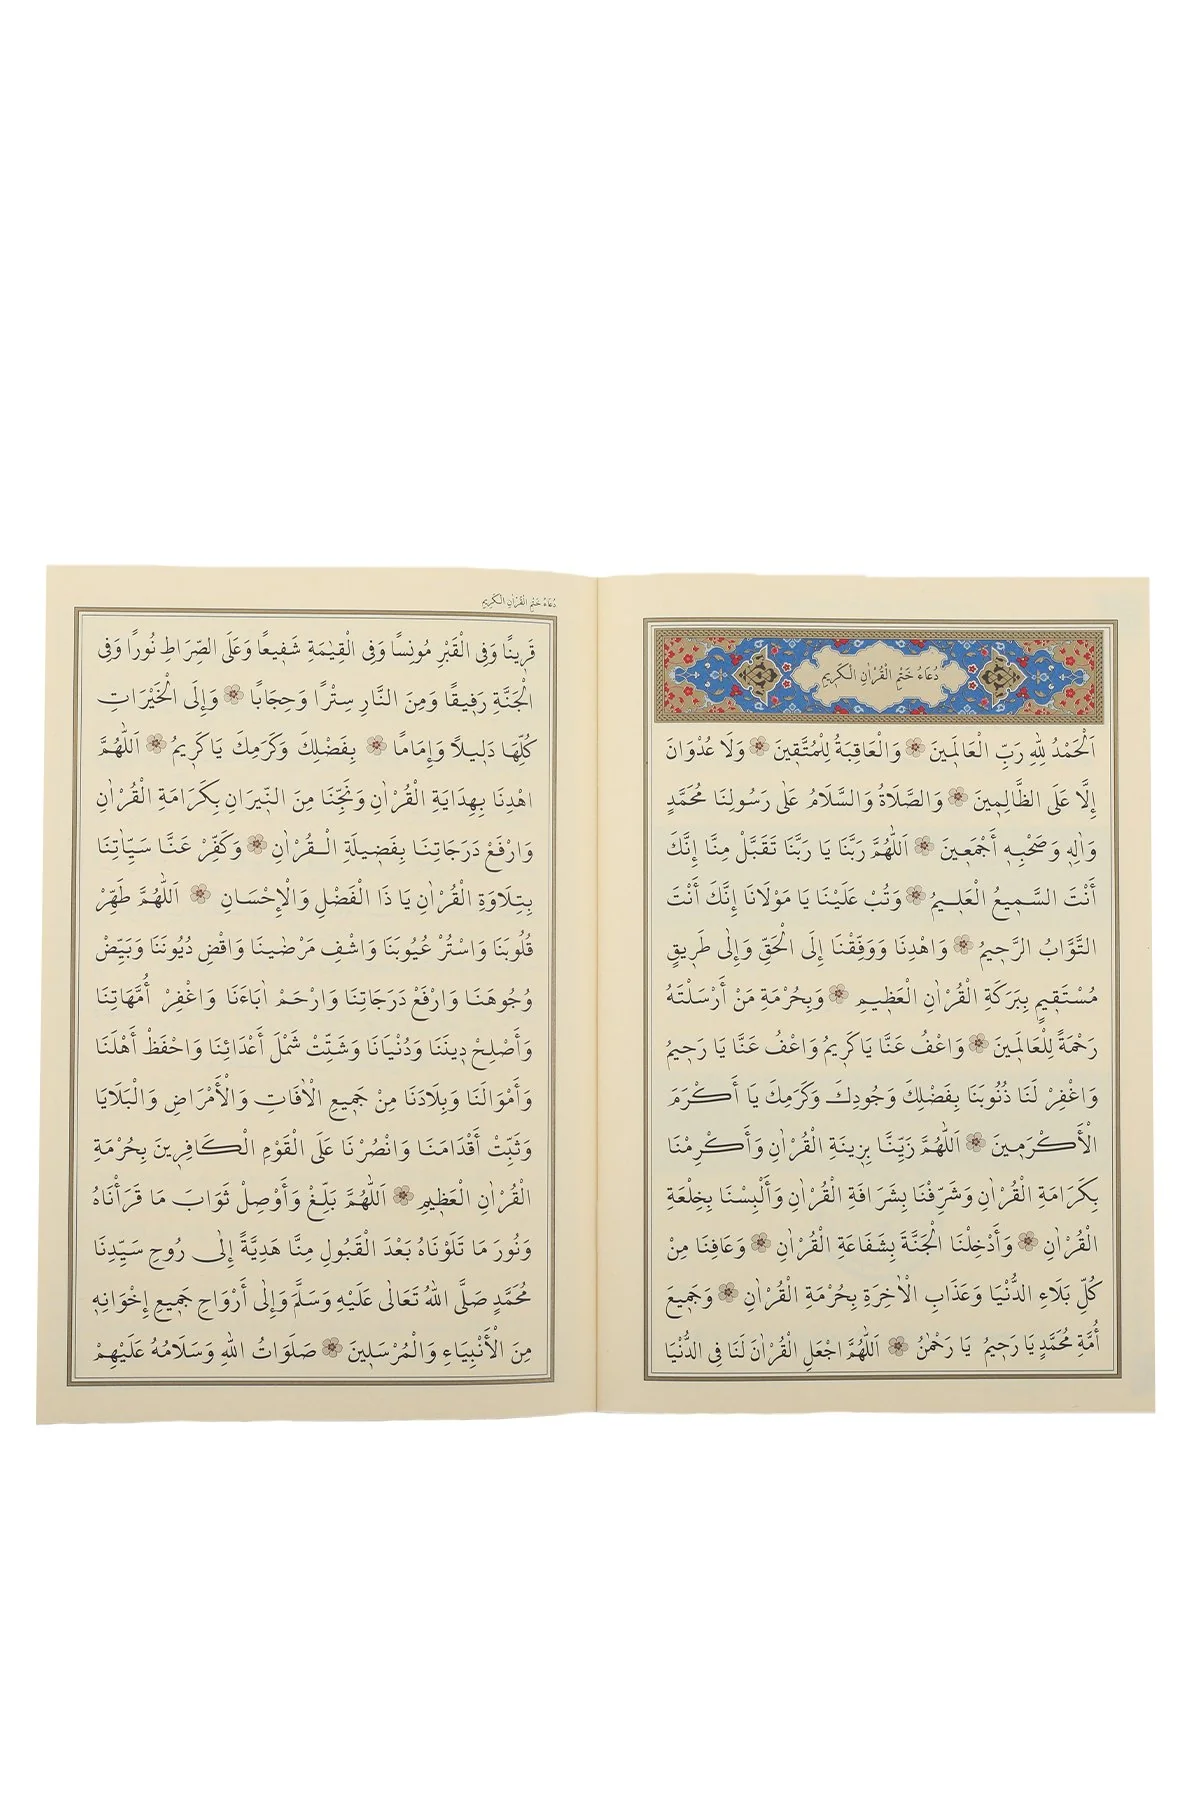 دُعَاءُ خَتْمِ الْقُرْاٰنِ الْكَرِيمِ
اَلْحَمْدُ لِلّٰهِ رَبِّ الْعَالَمِينَ وَالْعَاقِبَةُ لِلْمُتَّقِينَ وَلَا عُدْوَانَ
إِلَّا عَلَى الظَّالِمِينَ وَالصَّلَاةُ وَالسَّلَامُ عَلٰى رَسُولِنَا مُحَمَّدٍ
وَاٰلِهٖ وَصَحْبِهٖ أَجْمَعِينَ اَللّٰهُمَّ رَبَّنَا يَا رَبَّنَا تَقَبَّلْ مِنَّا إِنَّكَ
أَنْتَ السَّمِيعُ الْعَلِيمُ وَتُبْ عَلَيْنَا يَا مَوْلَانَا إِنَّكَ أَنْتَ
التَّوَّابُ الرَّحِيمُ وَاهْدِنَا وَوَفِّقْنَا إِلَى الْحَقِّ وَإِلٰى طَرِيقٍ
مُسْتَقِيمٍ بِبَرَكَةِ الْقُرْاٰنِ الْعَظِيمِ وَبِحُرْمَةِ مَنْ أَرْسَلْتَهُ
رَحْمَةً لِلْعَالَمِينَ وَاعْفُ عَنَّا يَا كَرِيمُ وَاعْفُ عَنَّا يَا رَحِيمُ
وَاغْفِرْ لَنَا ذُنُوبَنَا بِفَضْلِكَ وَجُودِكَ وَكَرَمِكَ يَا أَكْرَمَ
الْأَكْرَمِينَ اَللّٰهُمَّ زَيِّنَّا بِزِينَةِ الْقُرْاٰنِ وَأَكْرِمْنَا
بِكَرَامَةِ الْقُرْاٰنِ وَشَرِّفْنَا بِشَرَافَةِ الْقُرْاٰنِ وَأَلْبِسْنَا بِخِلْعَةِ
الْقُرْاٰنِ وَأَدْخِلْنَا الْجَنَّةَ بِشَفَاعَةِ الْقُرْاٰنِ وَعَافِنَا مِنْ
كُلِّ بَلَاءِ الدُّنْيَا وَعَذَابِ الْاٰخِرَةِ بِحُرْمَةِ الْقُرْاٰنِ وَجَمِيعَ
أُمَّةِ مُحَمَّدٍ يَا رَحِيمُ يَا رَحْمٰنُ اَللّٰهُمَّ اجْعَلِ الْقُرْاٰنَ لَنَا فِي الدُّنْيَا
دُعَاءُ خَتْمِ الْقُرْاٰنِ الْكَرِيمِ
قَرِينًا وَفِي الْقَبْرِ مُونِسًا وَفِي الْقِيٰمَةِ شَفِيعًا وَعَلَى الصِّرَاطِ نُورًا وَفِي
الْجَنَّةِ رَفِيقًا وَمِنَ النَّارِ سِتْرًا وَحِجَابًا وَإِلَى الْخَيْرَاتِ
كُلِّهَا دَلِيلًا وَإِمَامًا بِفَضْلِكَ وَكَرَمِكَ يَا كَرِيمُ اَللّٰهُمَّ
اهْدِنَا بِهِدَايَةِ الْقُرْاٰنِ وَنَجِّنَا مِنَ النِّيرَانِ بِكَرَامَةِ الْقُرْاٰنِ
وَارْفَعْ دَرَجَاتِنَا بِفَضِيلَةِ الْقُرْاٰنِ وَكَفِّرْ عَنَّا سَيِّاٰتِنَا
بِتِلَاوَةِ الْقُرْاٰنِ يَا ذَا الْفَضْلِ وَالْإِحْسَانِ اَللّٰهُمَّ طَهِّرْ
قُلُوبَنَا وَاسْتُرْ عُيُوبَنَا وَاشْفِ مَرْضٰينَا وَاقْضِ دُيُونَنَا وَبَيِّضْ
وُجُوهَنَا وَارْفَعْ دَرَجَاتِنَا وَارْحَمْ اٰبَاءَنَا وَاغْفِرْ أُمَّهَاتِنَا
وَأَصْلِحْ دِينَنَا وَدُنْيَانَا وَشَتِّتْ شَمْلَ أَعْدَائِنَا وَاحْفَظْ أَهْلَنَا
وَأَمْوَالَنَا وَبِلَادَنَا مِنْ جَمِيعِ الْاٰفَاتِ وَالْأَمْرَاضِ وَالْبَلَايَا
وَثَبِّتْ أَقْدَامَنَا وَانْصُرْنَا عَلَى الْقَوْمِ الْكَافِرِينَ بِحُرْمَةِ
الْقُرْاٰنِ الْعَظِيمِ اَللّٰهُمَّ بَلِّغْ وَأَوْصِلْ ثَوَابَ مَا قَرَأْنَاهُ
وَنُورَ مَا تَلَوْنَاهُ بَعْدَ الْقَبُولِ مِنَّا هَدِيَّةً إِلٰى رُوحِ سَيِّدِنَا
مُحَمَّدٍ صَلَّى اللّٰهُ تَعَالٰى عَلَيْهِ وَسَلَّمَ وَإِلٰى أَرْوَاحِ جَمِيعِ إِخْوَانِهٖ
مِنَ الْأَنْبِيَاءِ وَالْمُرْسَلِينَ صَلَوَاتُ اللّٰهِ وَسَلَامُهُ عَلَيْهِمْ